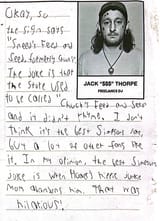 Okay, so
the sign says
"Sneed's Feed and
Seed, Formerly Chuck's"
The joke is that
the store used
to be called
"Chuck's Feed and Seed"
JACK "$$$" THORPE
FREELANCE DJ
and it didn't rhyme. I don't
think it's the best Simpsons joke,
but a lot of other fans like
it. In my opinion, the best Simpsons
joke is when Homer's
mom abandons him. That was
hilarious!